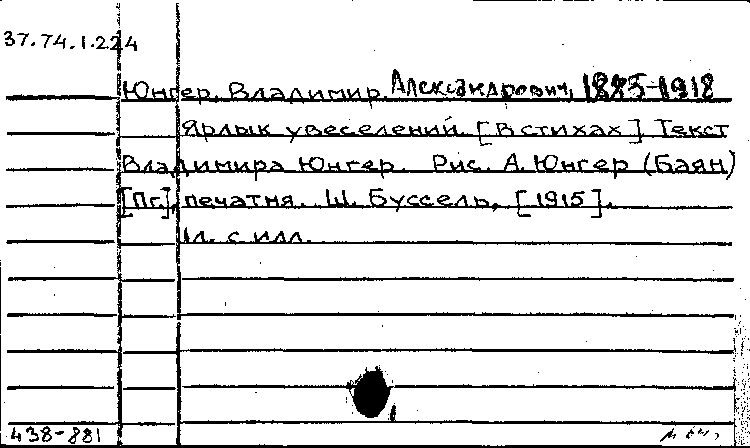 37.74.1.224
Юнгер, Владимир Александрович, 1883-1918
Ярлык увеселений. [В стихах] Текст
Владимира Юнгер. Рис. А. Юнгер (Баян)
[Пг], печатня. Ш. Буссель, [1915].
1л. с илл.
438-881